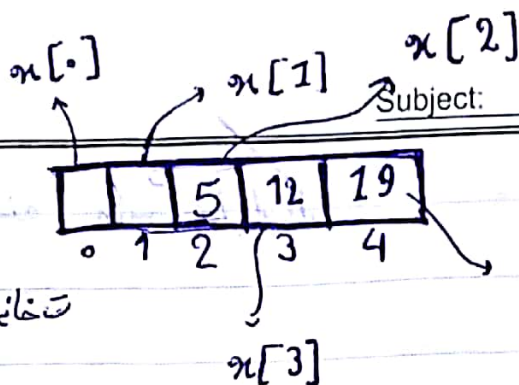 x[0] x[1] x[2]
Subject:
5 12 19
0 1 2 3 4
x[3]